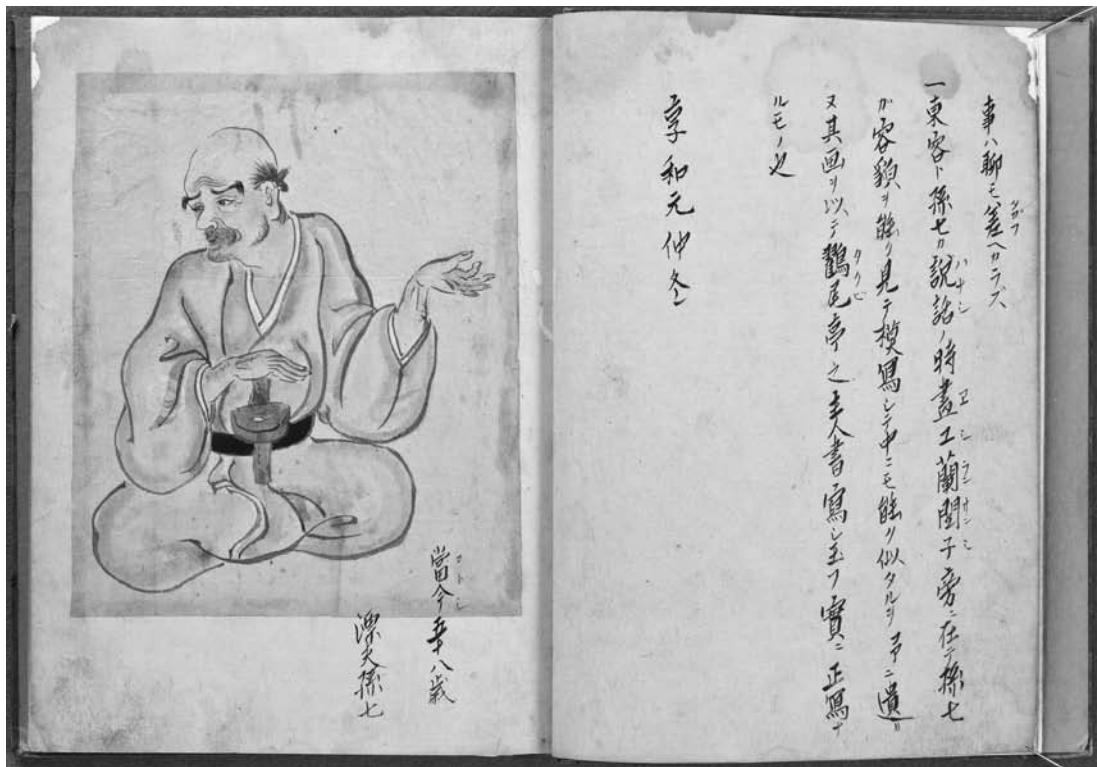 事ハ聊モ差ヘカラズ
一東容ト孫七カ説話ノ時畫工蘭閨子旁ニ在テ孫七
ガ容貌ヲ能ク見テ模寫シテ中ニモ能ク似タルヲ予ニ遺リ
又其画ヲ以テ鶴尾亭之主人書寫シ玉フ實ニ正寫ナ
ルモノ也
享和元仲冬
當今五十八歳
漂夫孫七